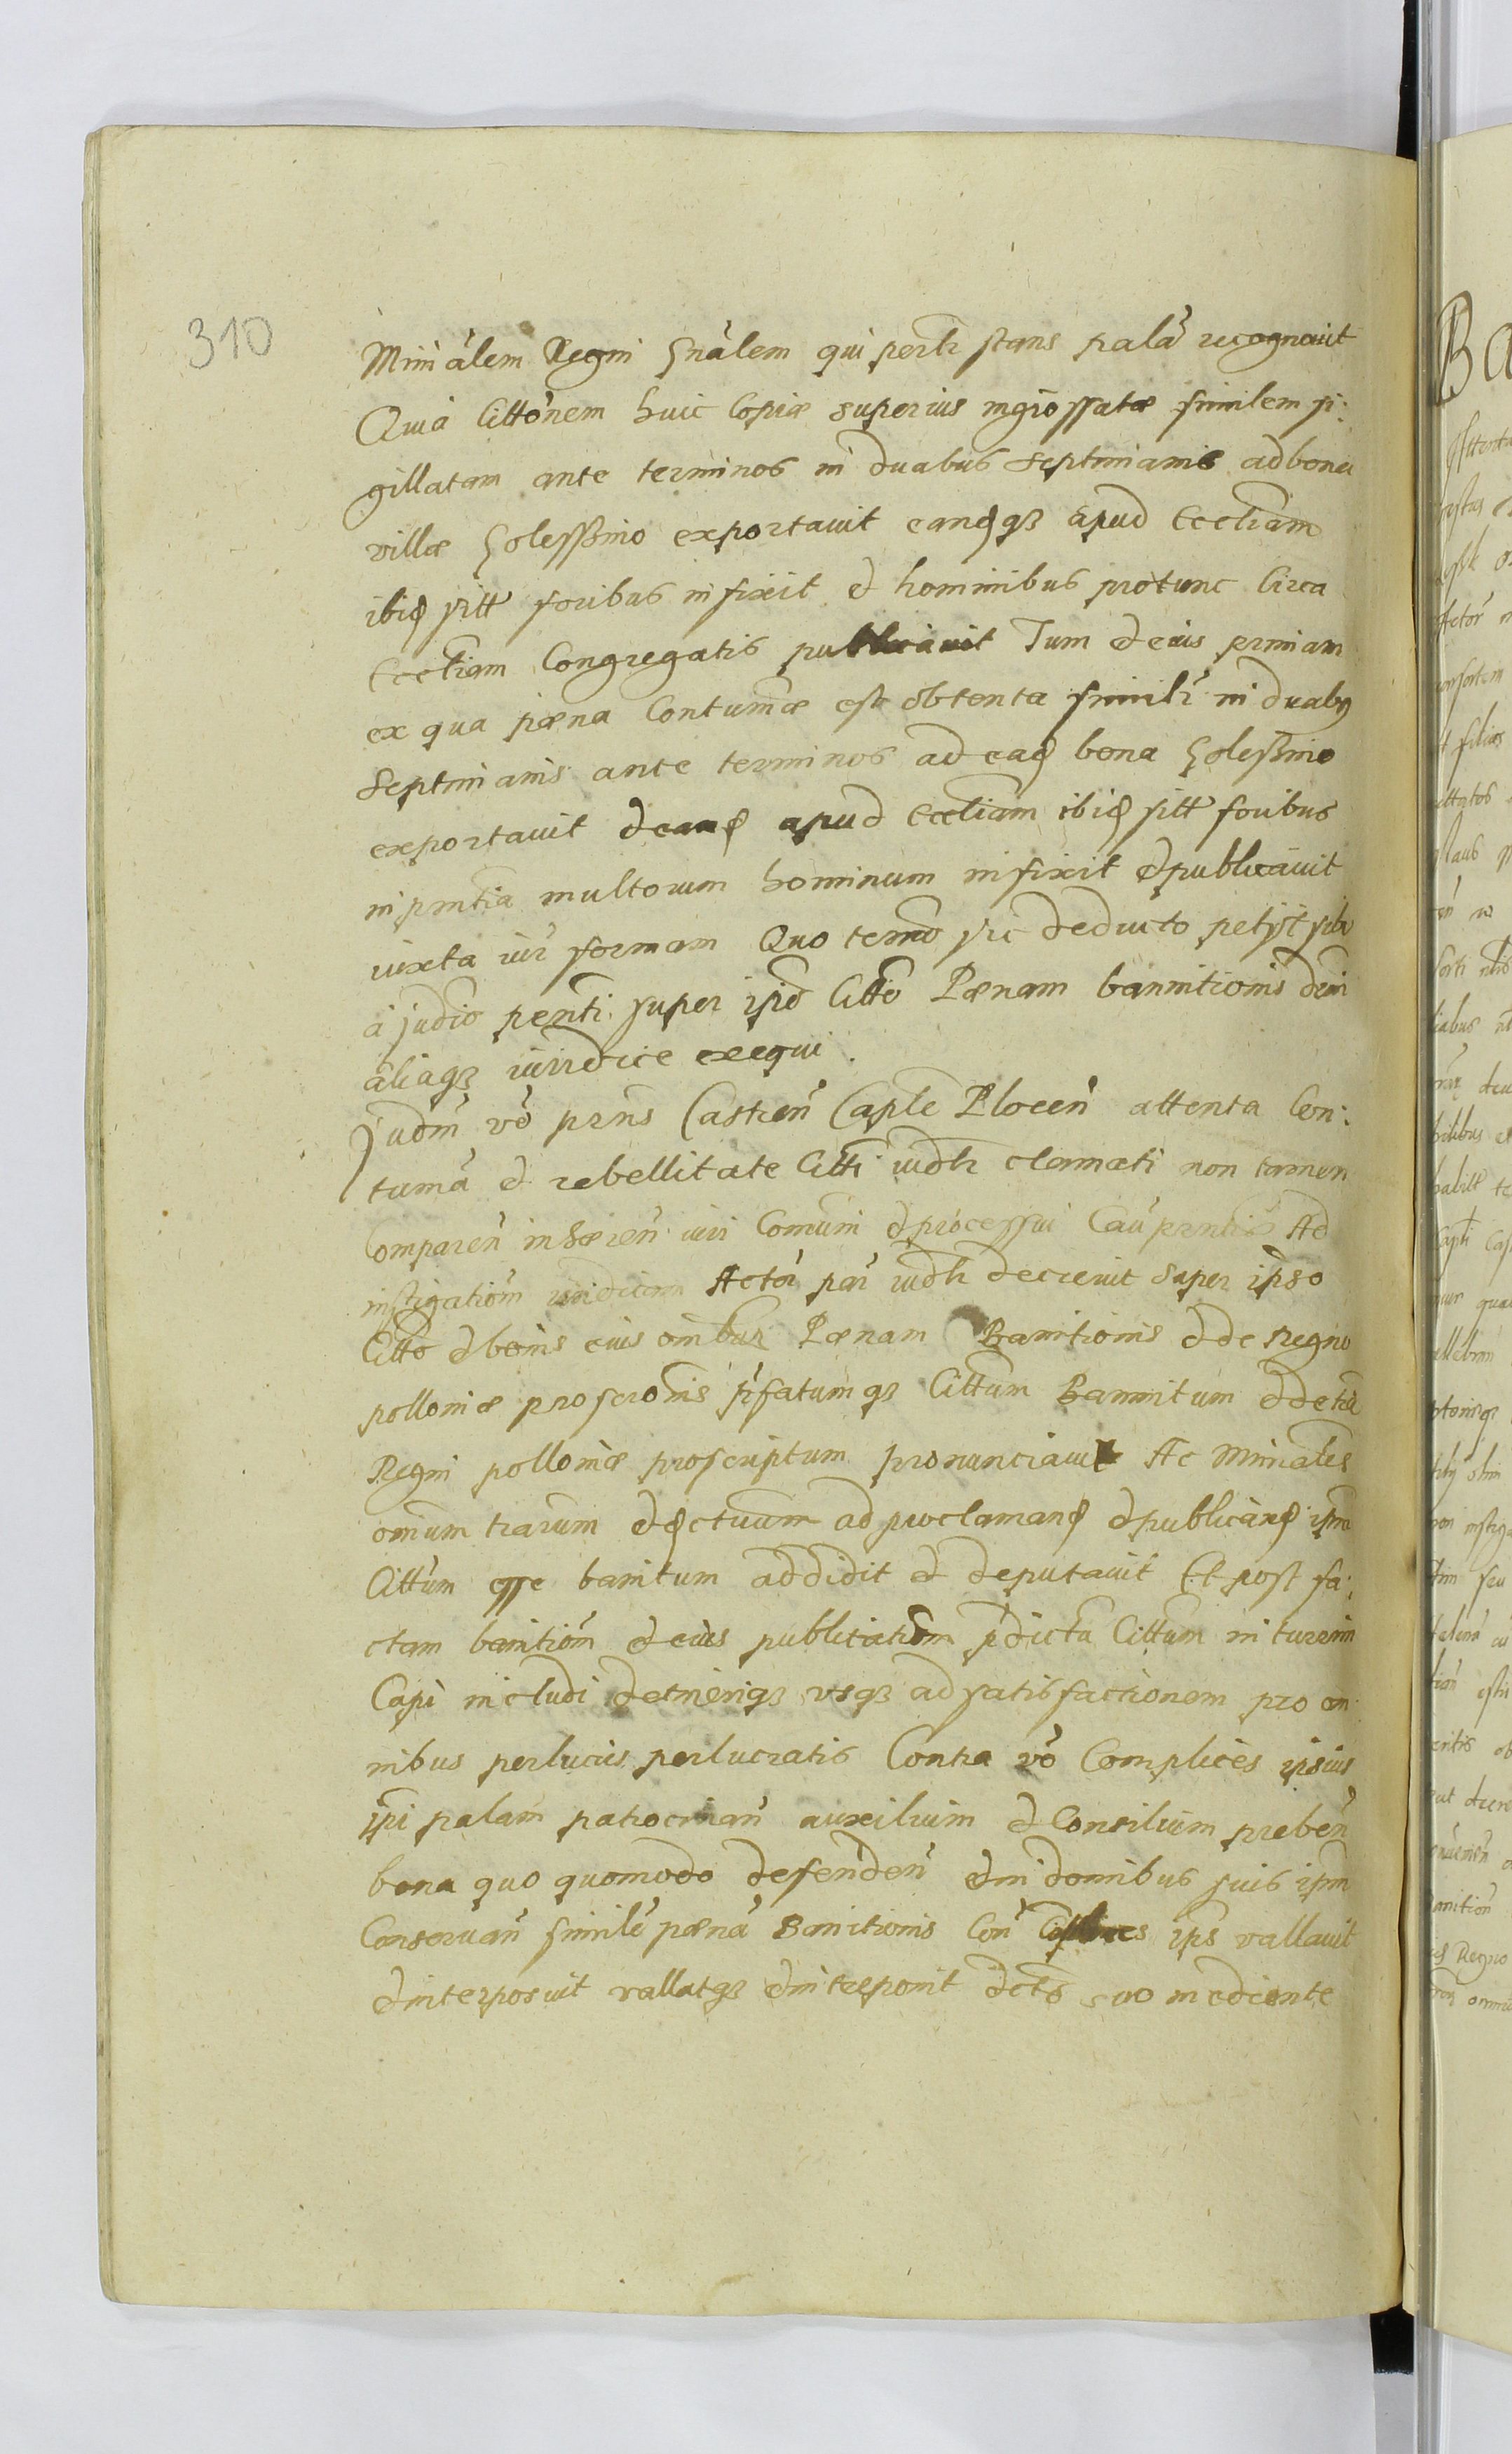 310
Minialem Regni Gnalem qui perlr stans palā recognovit
Quia Cittonem huic Copiæ superius ingrossatæ similem si:
gillatam ante terminos in duabus septimanis ad bona
villæ Golessino exportavit eandqz apud Eccliam
ibid sitt foribus infixit et hominibus protunc Circa
Eccliam Congregatis publicavit Tum et eius
ex qua pæna Contumæ est obtenta simili in duabus
septimanis ante terminos ad ead bona Golessino
exportavit et eand apud Eccliam ibid sitt foribus
in pntia multorum hominum infixit et publicavit
iuxta iur formam Quo termo sic deducto petijt sibi
à judio penti super ipso Citto Pænam bannitionis
aliaqz iuridice exequi.
Judm vō prns Castren Caple Plocen attenta Con:
tumā et rebellitate Citti iudlr clamati non tamen
Comparen inhæren iuri Comuni et processui Cau prntis Ad
instigationm iuridicam Actor par iudlr decrevit super ipso
Citto et bonis eius omībus Pænam Banitionis et de Regno
polloniæ proscronis prfatumqz Cittum Bannitum et de
Regni polloniæ proscriptum pronunciavit Ac Miniales
omium trarum et dctuum ad proclamand et publicand ipm
Cittum esse banitum addidit et deputavit Et post fa:
ctam banitiom et eius publicatiom prdictū Cittum in turrim
Capi includi detineriqz vsqz ad satisfactionem pro om
nibus perlucris perlucratis Contra vō Complices ipsius
ipi palam patrocinan auxilium et Consilium preben
bona quo quomodo defenden et in domibus suis ipm
Conservan simile pæna Banitionis Con ips vallavit
et interposuit vallatqz et interponit dcto suo mediante